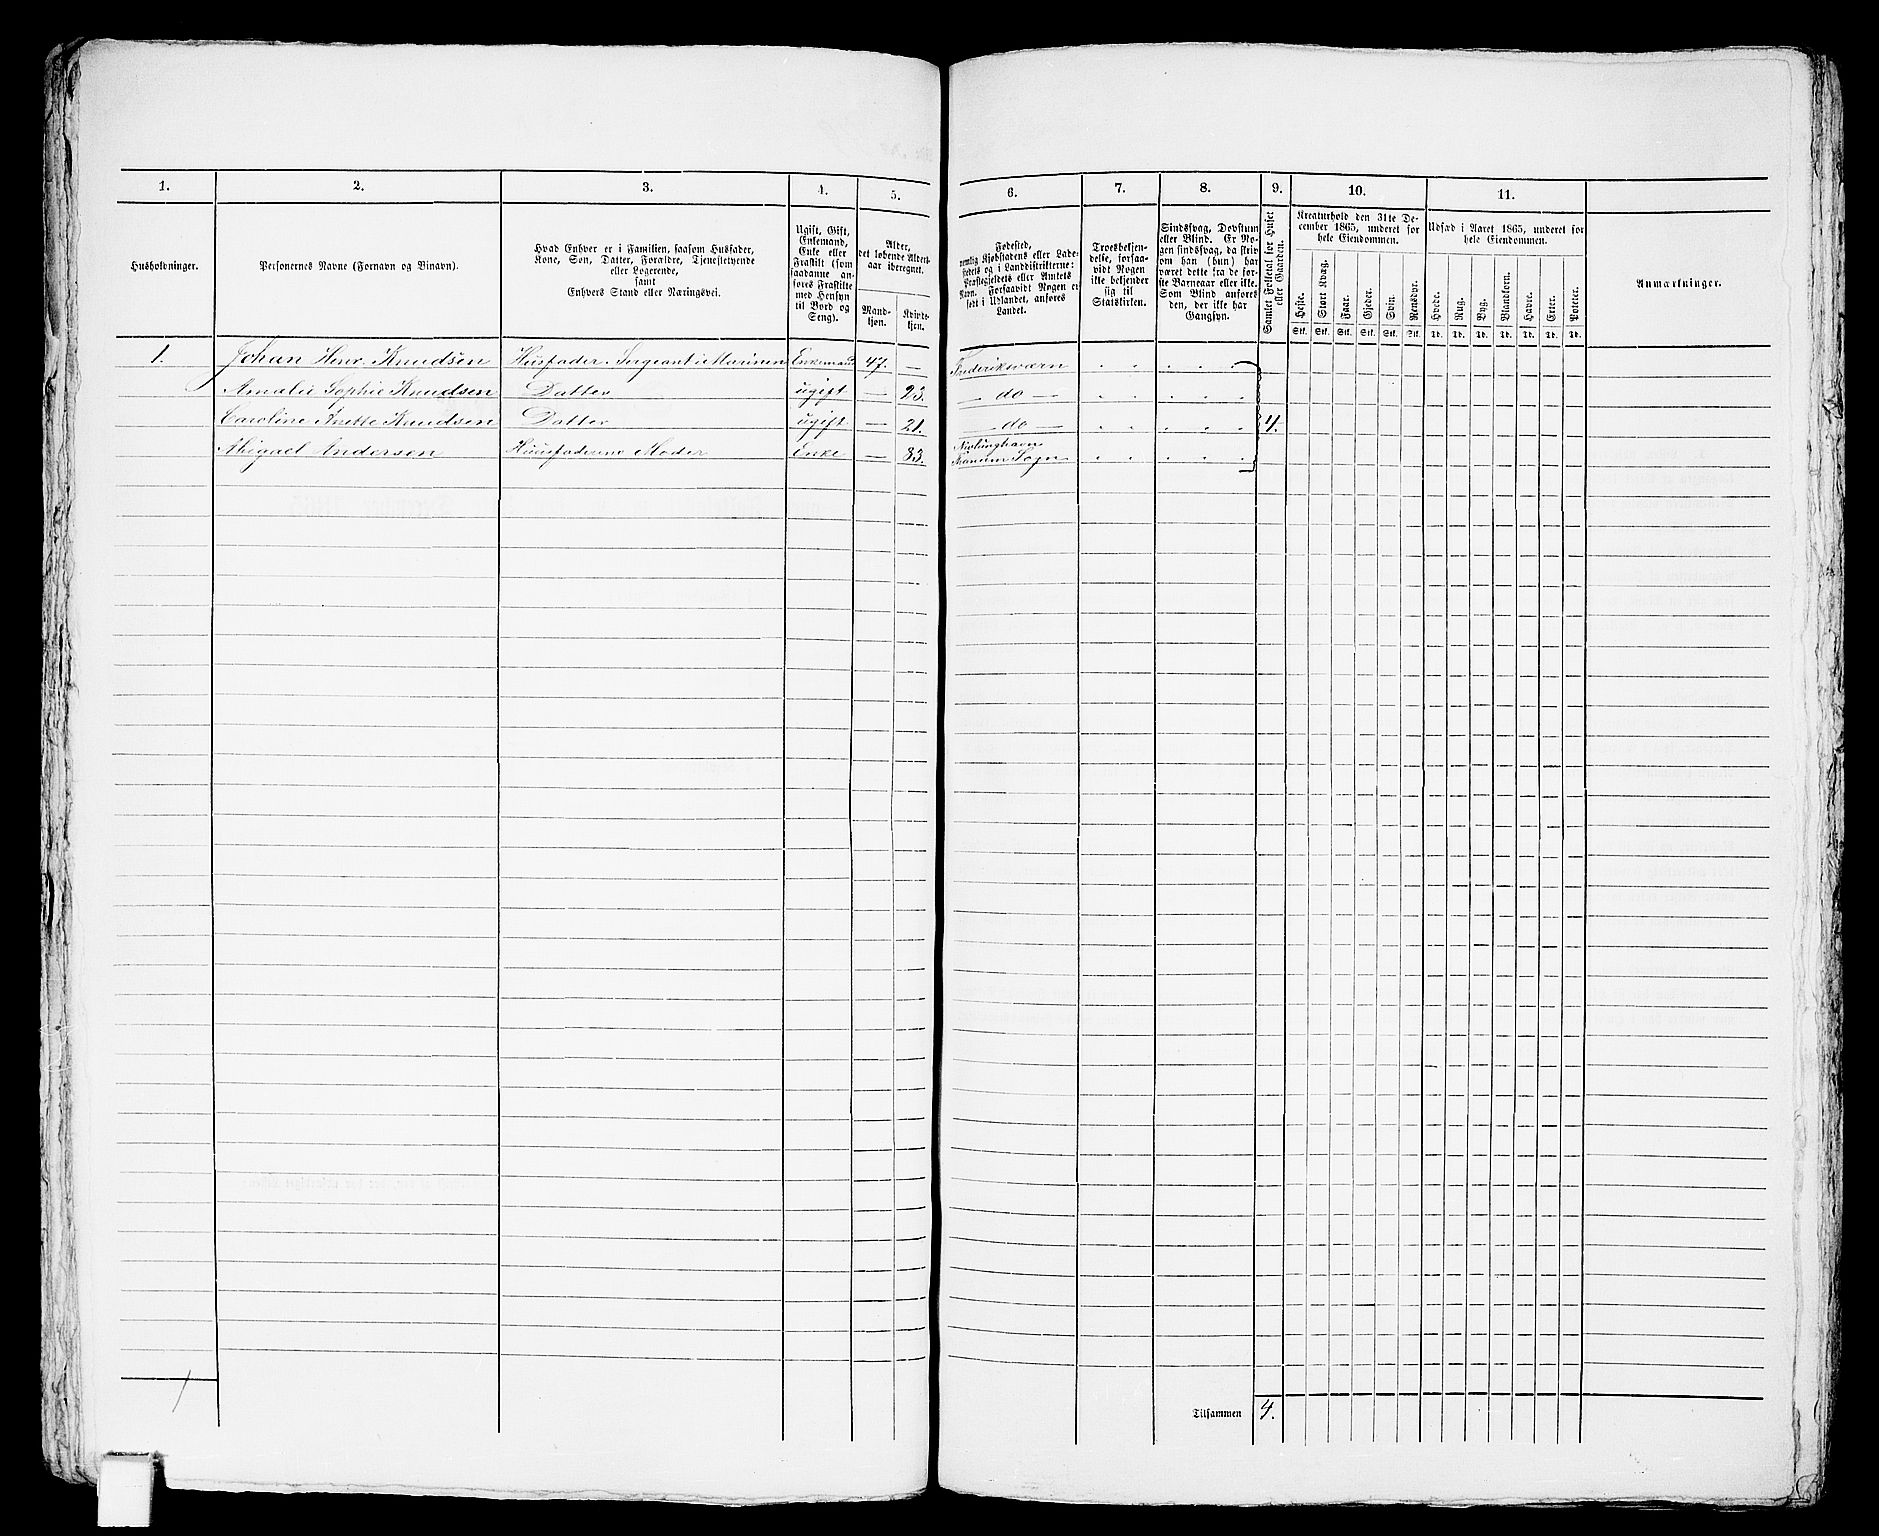 1. 2. 3. 4. 5. 6. 7. 8. 9. 10. 11.
Husholdninger.
Personernes Navne (Fornavn og Binavn).
Hvad Enhver er i Familien, saasom Husfader,
Kone, Søn, Datter, Forældre, Tjenestetyende
eller Logerende,
samt
Enhvers Stand eller Næringsvei.
Ugift, Gift,
Enkemand,
Enke eller
Fraskilt (som
saadanne an-
føres Fraskilte
med Hensyn
til Bord og
Seng).
Alder,
det løbende Alders-
aar iberegnet.
Mand-
kjøn.
Kvinde-
kjøn.
Fødested,
nemlig Kjøbstadens eller Lade-
stedets og i Landdistrikterne:
Præstegjeldets eller Amtets
Navn. Forsaavidt Nogen er
født i Udlandet, anføres
Landet.
Troesbekjen-
delse, forsaa-
vidt Nogen
ikke bekjender
sig til
Statskirken.
Sindssvag, Døvstum
eller Blind. Er No-
gen sindssvag, da skriv
om han (hun) har
været dette fra de før-
ste Barneaar eller ikke.
Som Blind anføres
den, der ikke har
Gangsyn.
Samlet Folketal for Huset
eller Gaarden.
Kreaturhold den 31te De-
cember 1865, underet for
hele Eiendommen.
Heste. Stort Kvæg. Faar. Gjeder. Svin. Rensdyr.
Stk. Stk. Stk. Stk. Stk. Stk.
Udsæd i Aaret 1865, underet for
hele Eiendommen.
Hvede. Rug. Byg. Blandkorn. Havre. Erter. Poteter.
Td. Td. Td. Td. Td. Td. Td.
Anmærkninger.
1. Johan Henr. Knudsen Husfader. Sergeant i Marinen Enkemand 47. — Frederiksværn
Amalie Sophie Knudsen Datter ugift — 23. — do —
Caroline Anette Knudsen Datter ugift — 21. — do — 4.
Abigael Andersen Huusfaderens Moder Enke — 83. Sogn
Tilsammen 4.